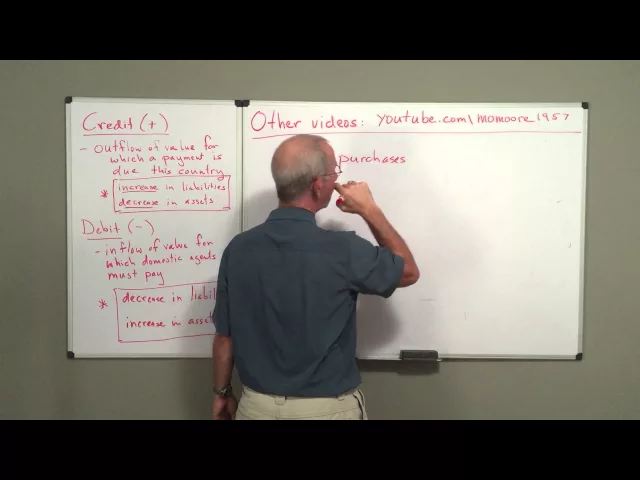 Credit (+)
- Outflow of value for
which a payment is
due this country
* increase in liabilities
decrease in assets
Debit (-)
- inflow of value for
which domestic agents
must pay
* decrease in
increase in
Other videos: youtube.com\momoore1957
purchases